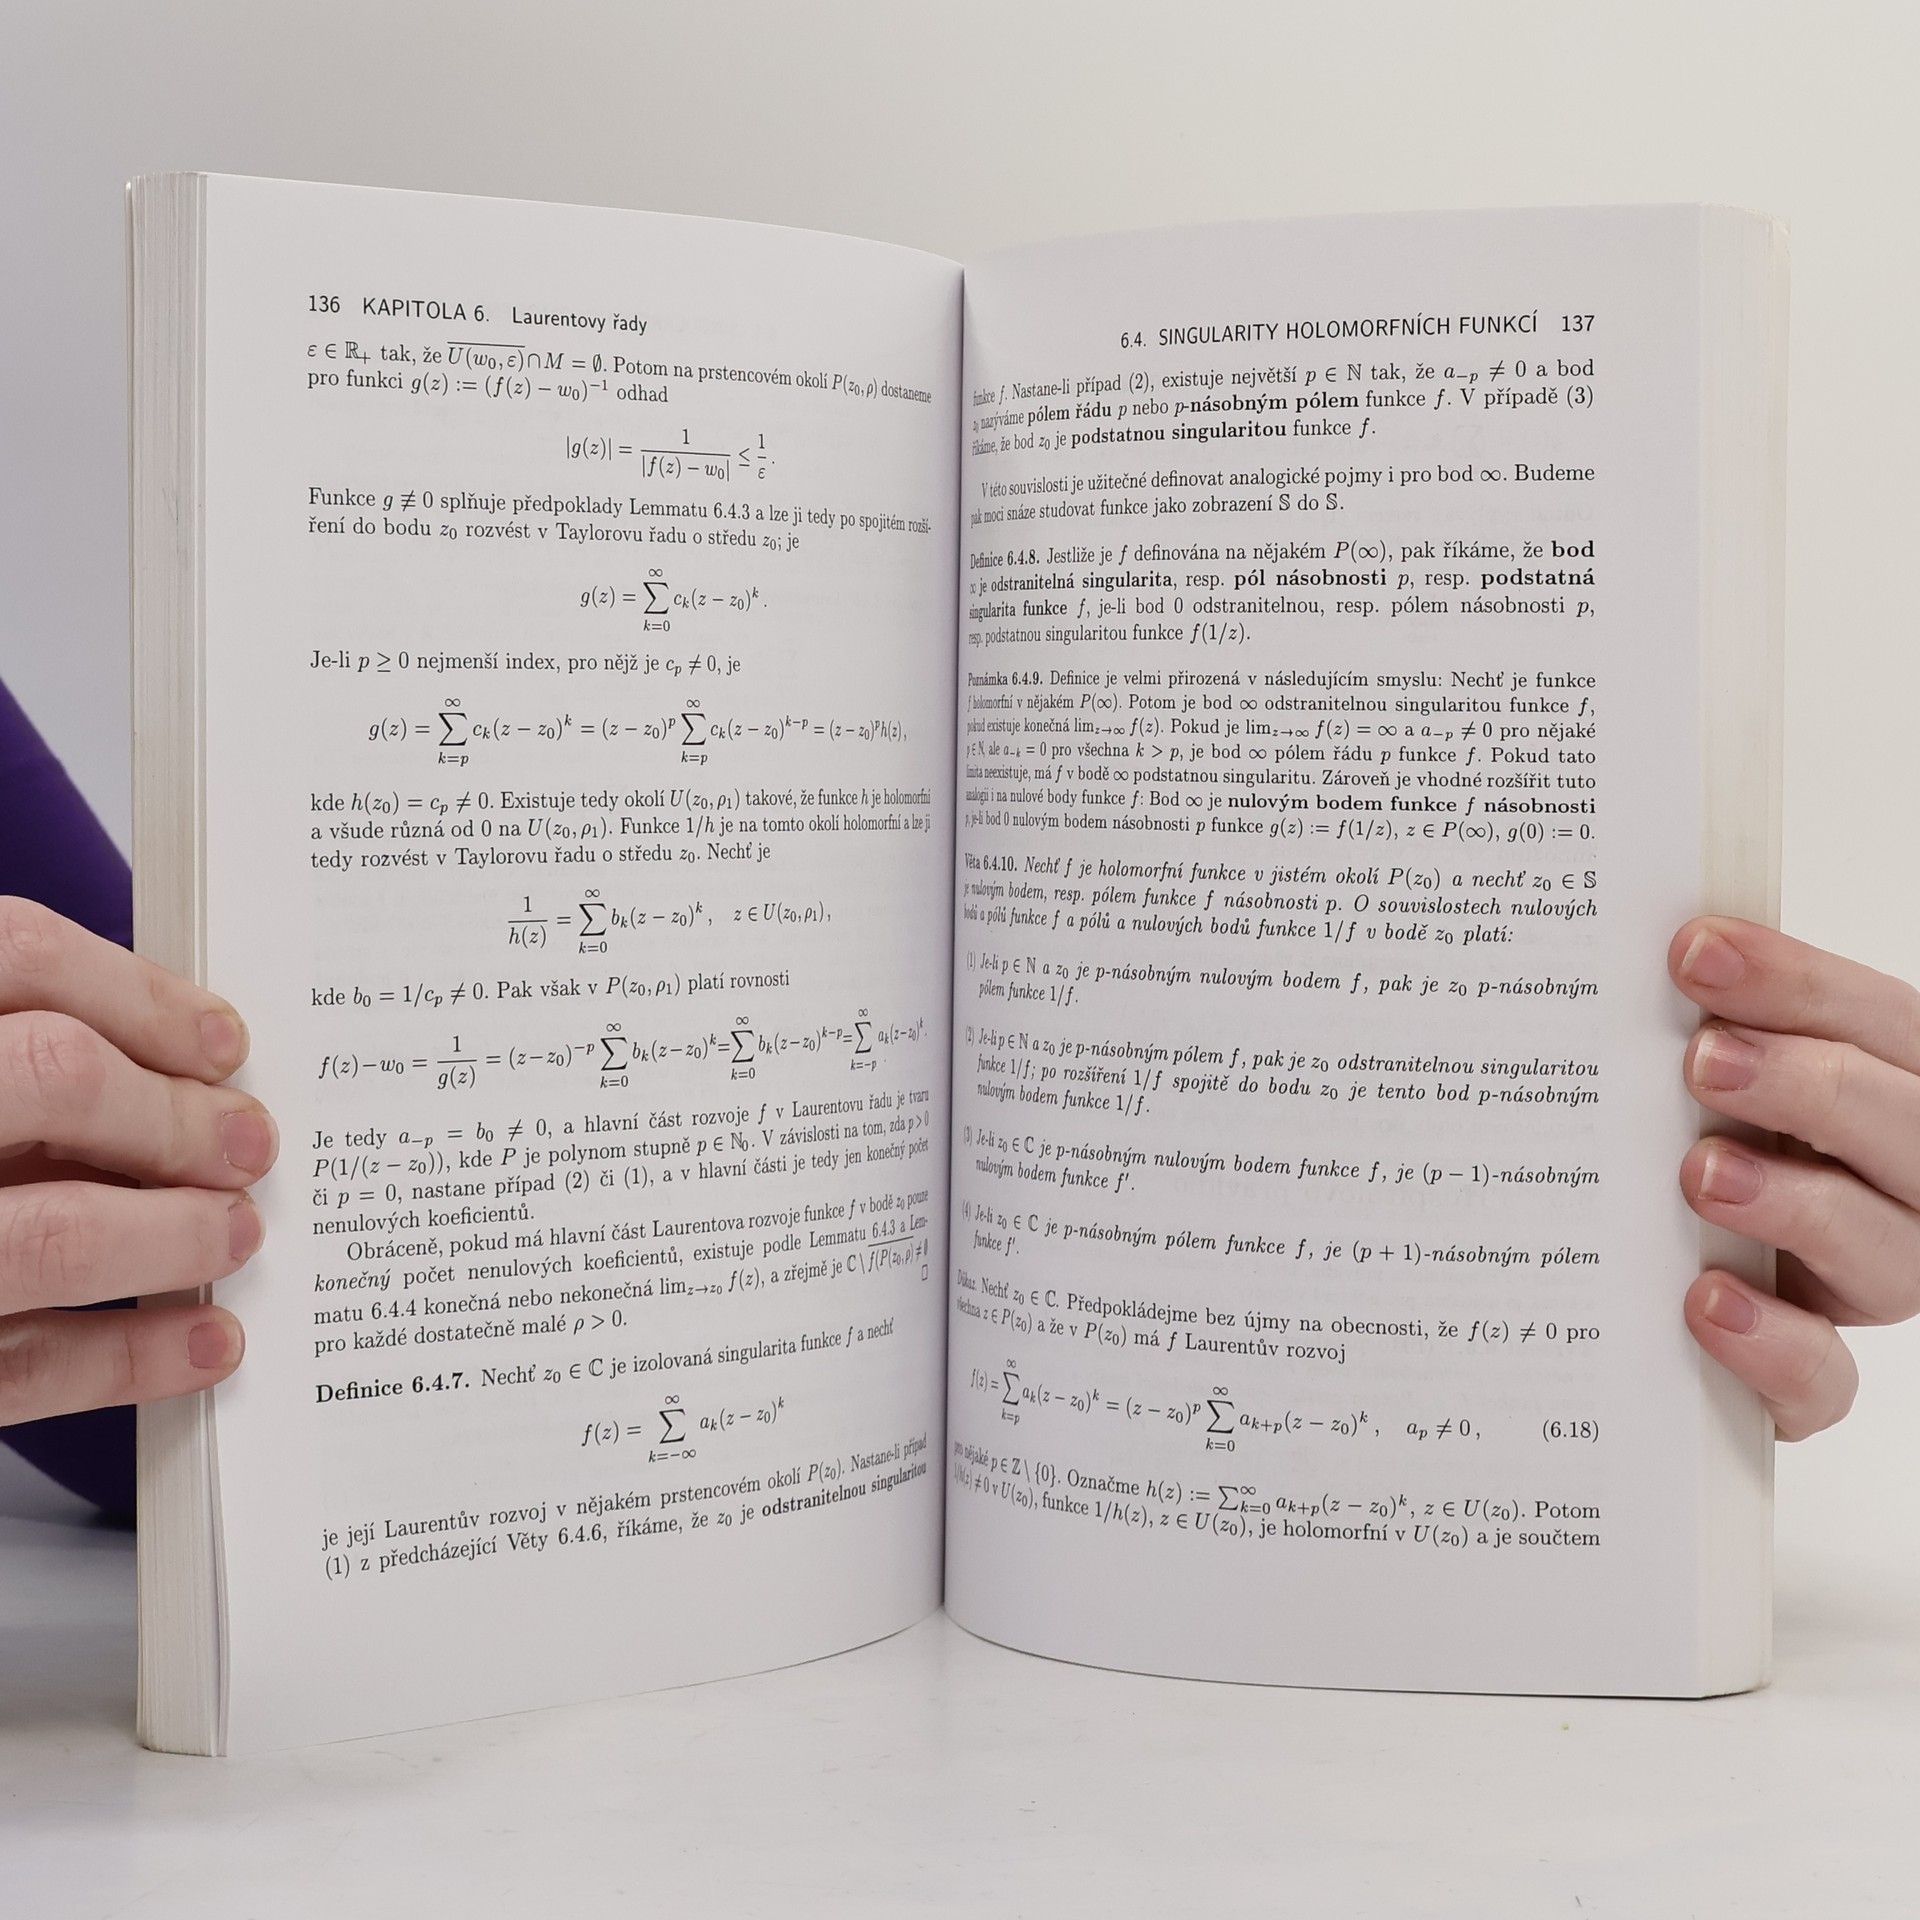 136 KAPITOLA 6. Laurentovy řady
ε ∈ ℝ₊ tak, že \overline{U(w₀, ε)} ∩ M = ∅. Potom na prstencovém okolí P(z₀, ρ) dostaneme
pro funkci g(z) := (f(z) − w₀)⁻¹ odhad
|g(z)| = \frac{1}{|f(z) − w₀|} ≤ \frac{1}{ε}.
Funkce g ≢ 0 splňuje předpoklady Lemmatu 6.4.3 a lze ji tedy po spojitém rozší-
ření do bodu z₀ rozvést v Taylorovu řadu o středu z₀; je
g(z) = \sum_{k=0}^{∞} c_k(z − z₀)^k .
Je-li p ≥ 0 nejmenší index, pro nějž je c_p ≠ 0, je
g(z) = \sum_{k=p}^{∞} c_k(z − z₀)^k = (z − z₀)^p \sum_{k=p}^{∞} c_k(z − z₀)^{k−p} = (z − z₀)^p h(z),
kde h(z₀) = c_p ≠ 0. Existuje tedy okolí U(z₀, ρ₁) takové, že funkce h je holomorfní
a všude různá od 0 na U(z₀, ρ₁). Funkce 1/h je na tomto okolí holomorfní a lze ji
tedy rozvést v Taylorovu řadu o středu z₀. Nechť je
\frac{1}{h(z)} = \sum_{k=0}^{∞} b_k(z − z₀)^k , z ∈ U(z₀, ρ₁),
kde b₀ = 1/c_p ≠ 0. Pak však v P(z₀, ρ₁) platí rovnosti
f(z)−w₀ = \frac{1}{g(z)} = (z−z₀)^{−p} \sum_{k=0}^{∞} b_k(z−z₀)^k = \sum_{k=0}^{∞} b_k(z−z₀)^{k−p} = \sum_{k=−p}^{∞} a_k(z−z₀)^k.
Je tedy a_{−p} = b₀ ≠ 0, a hlavní část rozvoje f v Laurentovu řadu je tvaru
P(1/(z − z₀)), kde P je polynom stupně p ∈ ℕ₀. V závislosti na tom, zda p > 0
či p = 0, nastane případ (2) či (1), a v hlavní části je tedy jen konečný počet
nenulových koeficientů.
Obráceně, pokud má hlavní část Laurentova rozvoje funkce f v bodě z₀ pouze
konečný počet nenulových koeficientů, existuje podle Lemmatu 6.4.3 a Lem-
matu 6.4.4 konečná nebo nekonečná lim_{z→z₀} f(z), a zřejmě je ℂ \ \overline{f(P(z₀, ρ))} ≠ ∅
pro každé dostatečně malé ρ > 0. □
Definice 6.4.7. Nechť z₀ ∈ ℂ je izolovaná singularita funkce f a nechť
f(z) = \sum_{k=−∞}^{∞} a_k(z − z₀)^k
je její Laurentův rozvoj v nějakém prstencovém okolí P(z₀). Nastane-li případ
(1) z předcházející Věty 6.4.6, říkáme, že z₀ je odstranitelnou singularitou
6.4. SINGULARITY HOLOMORFNÍCH FUNKCÍ 137
funkce f. Nastane-li případ (2), existuje největší p ∈ ℕ tak, že a_{−p} ≠ 0 a bod
z₀ nazýváme pólem řádu p nebo p-násobným pólem funkce f. V případě (3)
říkáme, že bod z₀ je podstatnou singularitou funkce f.
V této souvislosti je užitečné definovat analogické pojmy i pro bod ∞. Budeme
pak moci snáze studovat funkce jako zobrazení 𝕊 do 𝕊.
Definice 6.4.8. Jestliže je f definována na nějakém P(∞), pak říkáme, že bod
∞ je odstranitelná singularita, resp. pól násobnosti p, resp. podstatná
singularita funkce f, je-li bod 0 odstranitelnou, resp. pólem násobnosti p,
resp. podstatnou singularitou funkce f(1/z).
Poznámka 6.4.9. Definice je velmi přirozená v následujícím smyslu: Nechť je funkce
f holomorfní v nějakém P(∞). Potom je bod ∞ odstranitelnou singularitou funkce f,
pokud existuje konečná lim_{z→∞} f(z). Pokud je lim_{z→∞} f(z) = ∞ a a_{−p} ≠ 0 pro nějaké
p ∈ ℕ, ale a_{−k} = 0 pro všechna k > p, je bod ∞ pólem řádu p funkce f. Pokud tato
limita neexistuje, má f v bodě ∞ podstatnou singularitu. Zároveň je vhodné rozšířit tuto
analogii i na nulové body funkce f: Bod ∞ je nulovým bodem funkce f násobnosti
p, je-li bod 0 nulovým bodem násobnosti p funkce g(z) := f(1/z), z ∈ P(∞), g(0) := 0.
Věta 6.4.10. Nechť f je holomorfní funkce v jistém okolí P(z₀) a nechť z₀ ∈ 𝕊
je nulovým bodem, resp. pólem funkce f násobnosti p. O souvislostech nulových
bodů a pólů funkce f a pólů a nulových bodů funkce 1/f v bodě z₀ platí:
(1) Je-li p ∈ ℕ a z₀ je p-násobným nulovým bodem f, pak je z₀ p-násobným
pólem funkce 1/f.
(2) Je-li p ∈ ℕ a z₀ je p-násobným pólem f, pak je z₀ odstranitelnou singularitou
funkce 1/f; po rozšíření 1/f spojitě do bodu z₀ je tento bod p-násobným
nulovým bodem funkce 1/f.
(3) Je-li z₀ ∈ ℂ je p-násobným nulovým bodem funkce f, je (p − 1)-násobným
nulovým bodem funkce f′.
(4) Je-li z₀ ∈ ℂ je p-násobným pólem funkce f, je (p + 1)-násobným pólem
funkce f′.
Důkaz. Nechť z₀ ∈ ℂ. Předpokládejme bez újmy na obecnosti, že f(z) ≠ 0 pro
všechna z ∈ P(z₀) a že v P(z₀) má f Laurentův rozvoj
f(z) = \sum_{k=p}^{∞} a_k(z − z₀)^k = (z − z₀)^p \sum_{k=0}^{∞} a_{k+p}(z − z₀)^k , a_p ≠ 0 , (6.18)
pro nějaké p ∈ ℤ \ {0}. Označme h(z) := \sum_{k=0}^{∞} a_{k+p}(z − z₀)^k, z ∈ U(z₀). Potom
1/h(z) ≠ 0 v U(z₀), funkce 1/h(z), z ∈ U(z₀), je holomorfní v U(z₀) a je součtem